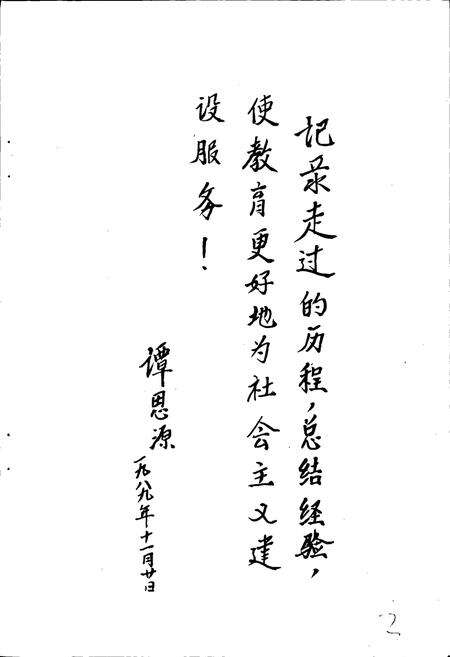 记录走过的历程，总结经验，
使教育更好地为社会主义建
设服务！
谭思源
一九八九年十一月廿日
2